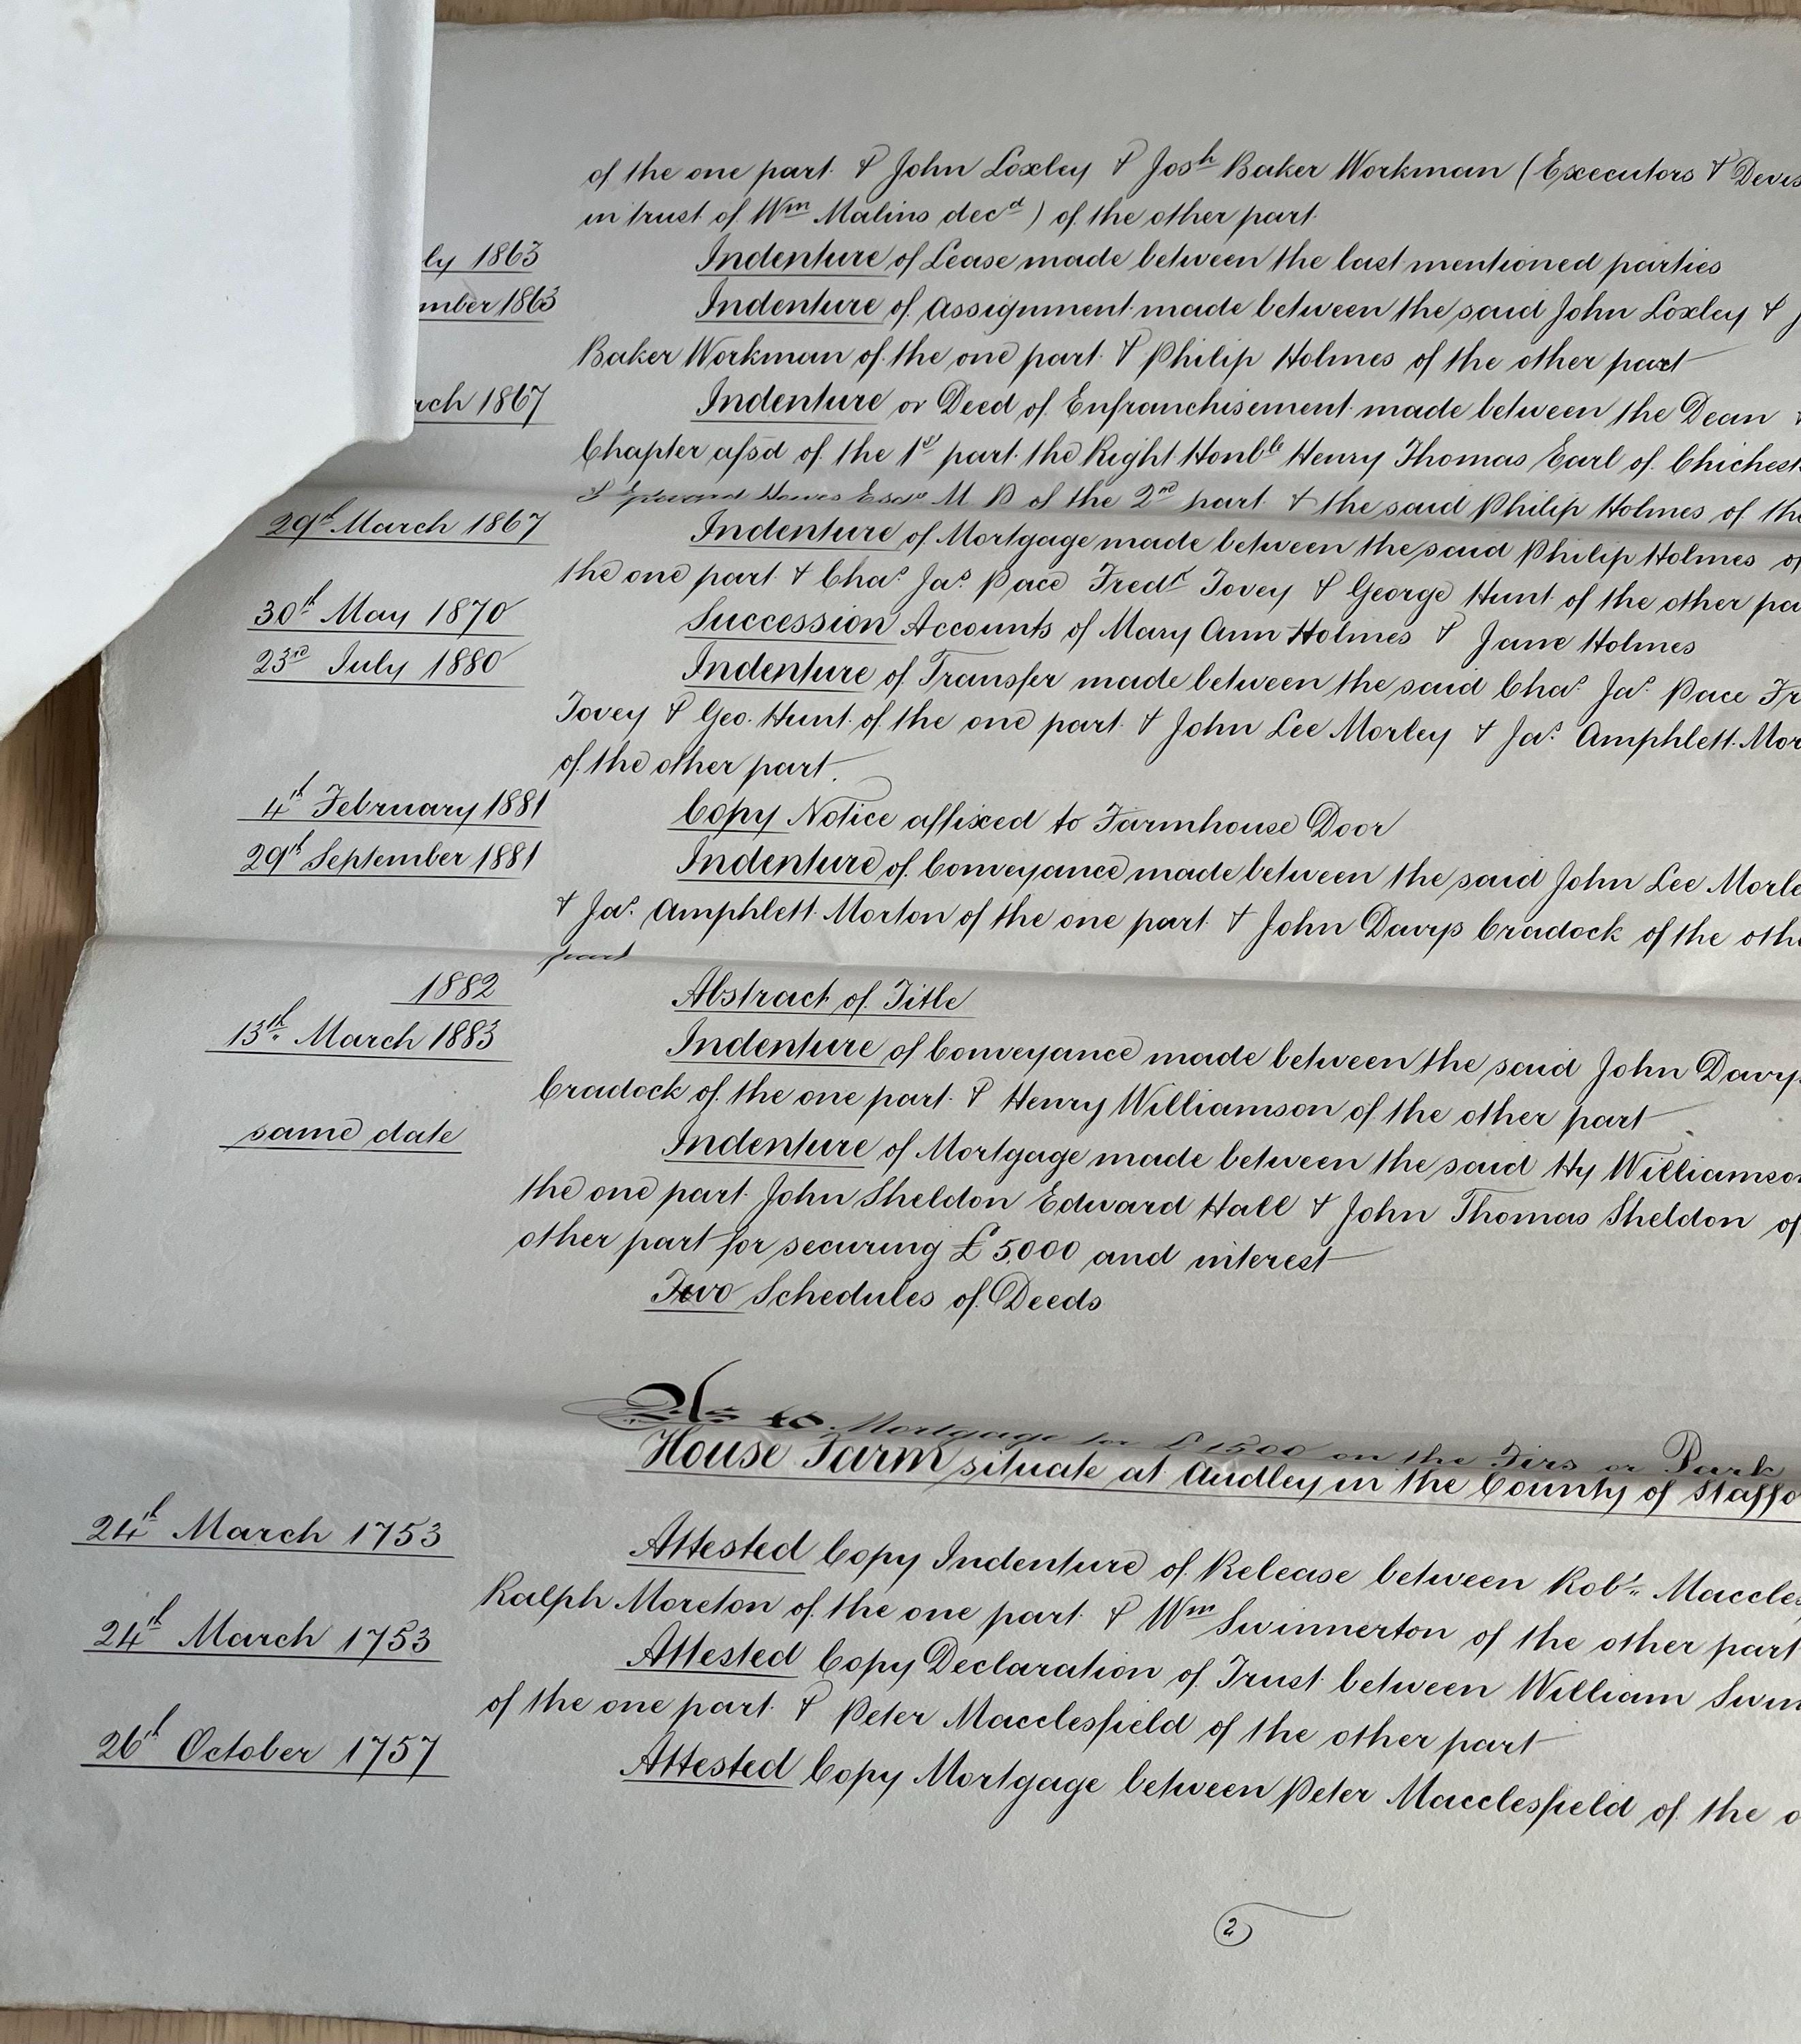 of the one part & John Loxley & Josh Baker Workman (Executors & Devis
in trust of Wm Malins decd) of the other part
ly 1863 Indenture of Lease made between the last mentioned parties
mber 1863 Indenture of Assignment made between the said John Loxley & J
Baker Workman of the one part & Philip Holmes of the other part
rch 1867 Indenture or Deed of Enfranchisement made between the Dean &
Chapter afsd of the 1st part the Right Honble Henry Thomas Earl of Chichest
& Howes Esqre M.P of the 2nd part & the said Philip Holmes of the
29th March 1867 Indenture of Mortgage made between the said Philip Holmes of
the one part & Chas Jas Pace Fredk Tovey & George Hunt of the other pa
30th May 1870 Succession Accounts of Mary Ann Holmes & Jane Holmes
23rd July 1880 Indenture of Transfer made between the said Chas Jas Pace Fr
Tovey & Geo. Hunt of the one part & John Lee Morley & Jas Amphlett Mor
of the other part.
4th February 1881 Copy Notice affixed to Farmhouse Door
29th September 1881 Indenture of Conveyance made between the said John Lee Morle
& Jas Amphlett Morton of the one part & John Davys Cradock of the othe
part
1882 Abstract of Title
13th March 1883 Indenture of Conveyance made between the said John Davys
Cradock of the one part & Henry Williamson of the other part
same date Indenture of Mortgage made between the said Hy Williamson
the one part John Sheldon Edward Hall & John Thomas Sheldon of
other part for securing £5,000 and interest
Two Schedules of Deeds
As to Mortgage for £1500 on the Firs or Park
House Farm situate at Audley in the County of Staffo
24th March 1753 Attested Copy Indenture of Release between Robt. Maccles
Ralph Moreton of the one part & Wm Swinnerton of the other part
24th March 1753 Attested Copy Declaration of Trust between William Swin
of the one part & Peter Macclesfield of the other part
26th October 1757 Attested Copy Mortgage between Peter Macclesfield of the o
2